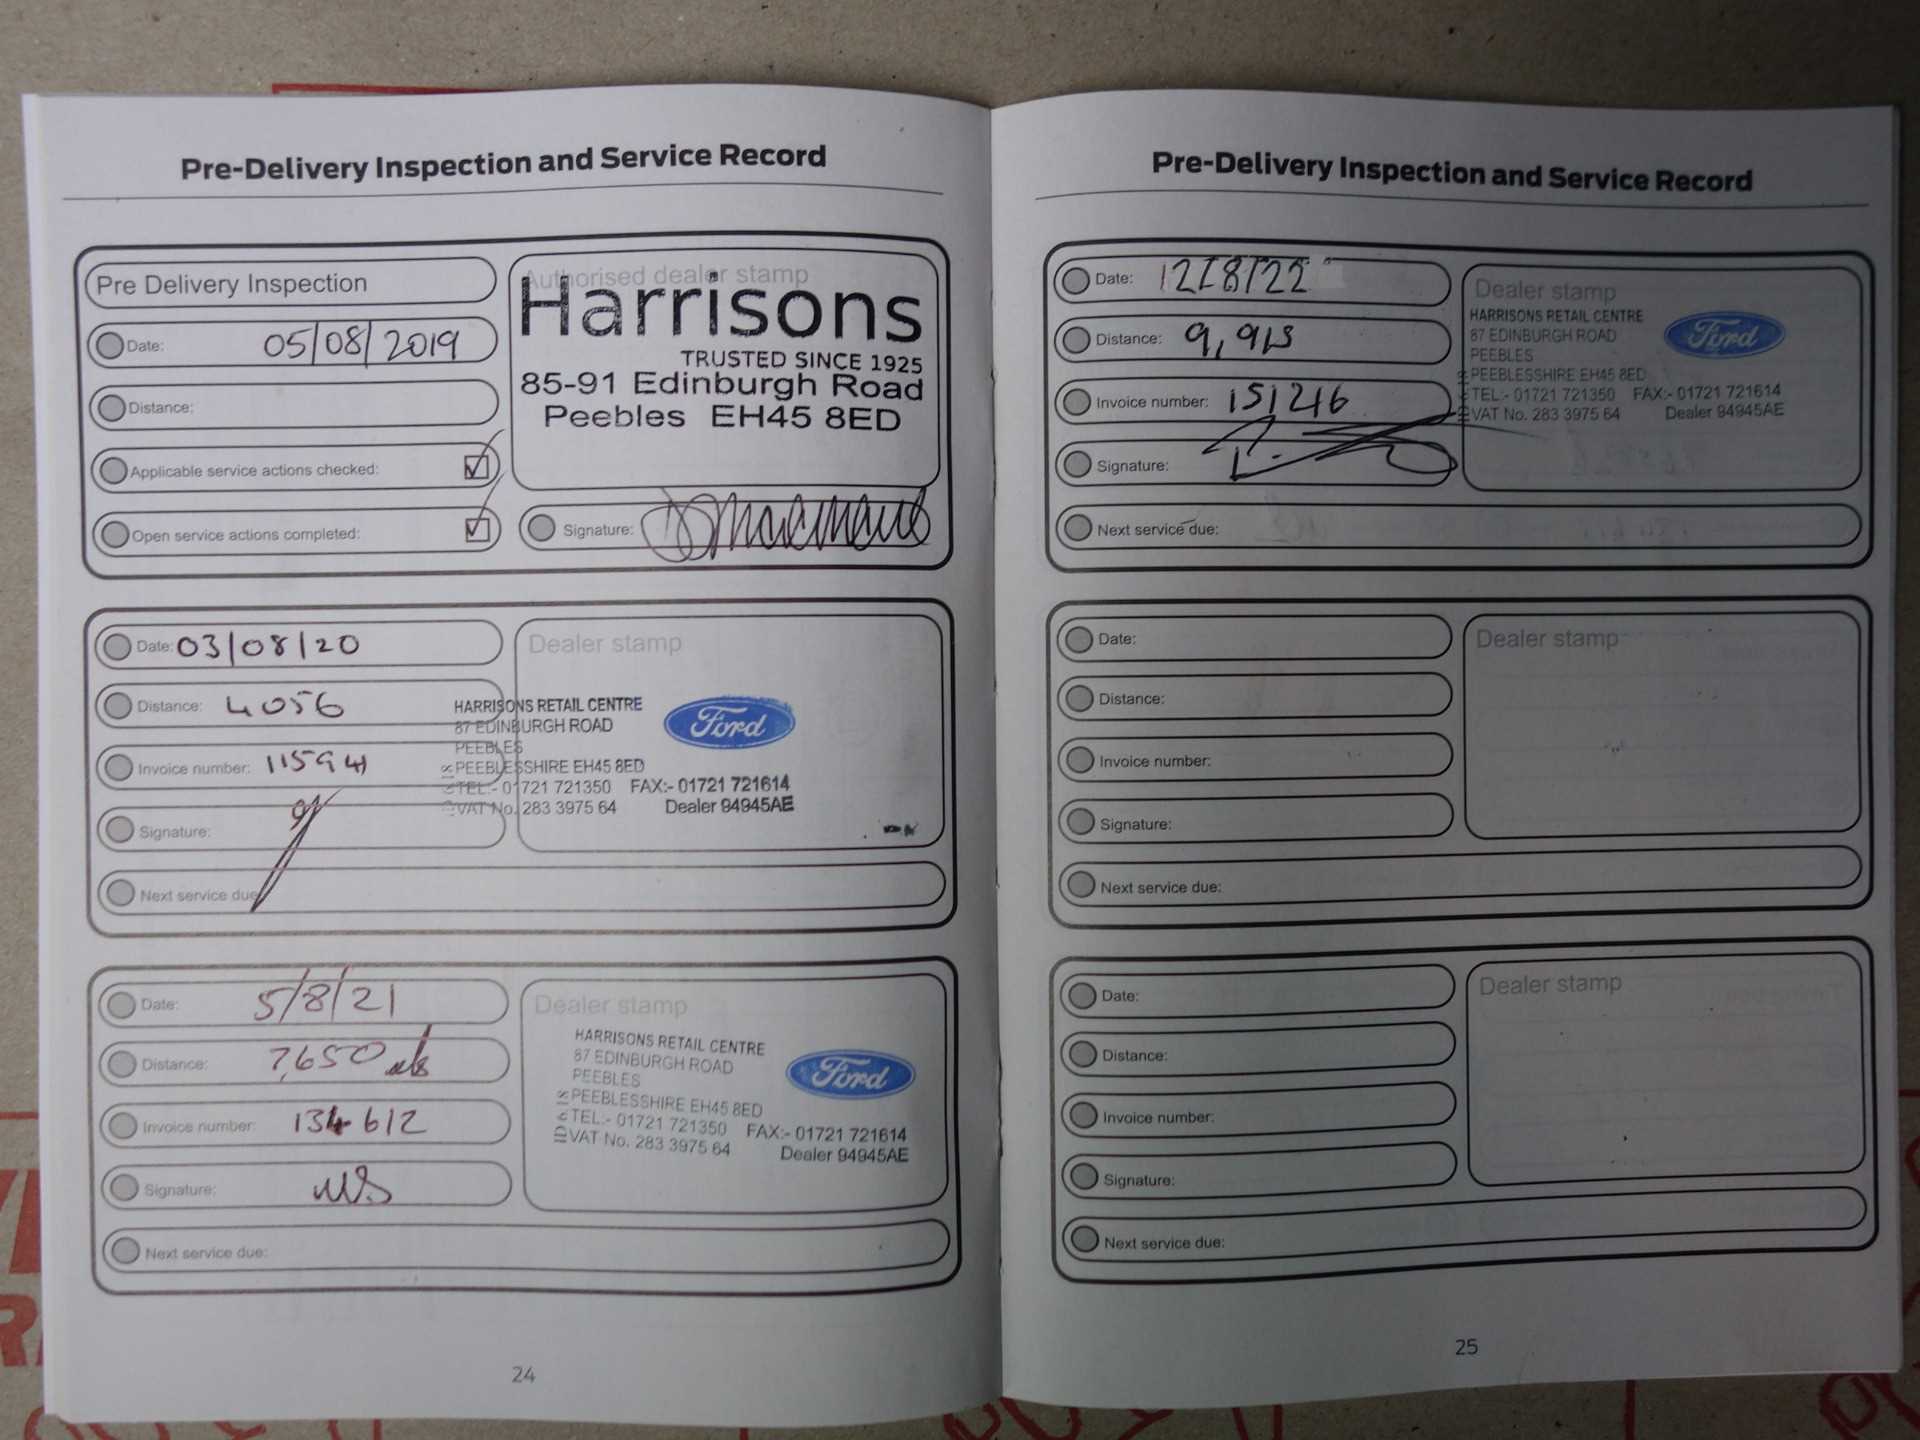 Pre-Delivery Inspection and Service Record
Pre Delivery Inspection
Date: 05/08/2019
Distance:
Applicable service actions checked:
Open service actions completed:
Authorised dealer stamp
Harrisons
TRUSTED SINCE 1925
85-91 Edinburgh Road
Peebles EH45 8ED
Signature:
Date: 03/08/20
Distance: 4056
Invoice number: 115941
Signature:
Next service due
Dealer stamp
HARRISONS RETAIL CENTRE
87 EDINBURGH ROAD
PEEBLES
PEEBLESSHIRE EH45 8ED
TEL:- 01721 721350 FAX:- 01721 721614
VAT No. 283 3975 64 Dealer 94945AE
Ford
Date: 5/8/21
Distance: 7,650 mls
Invoice number: 134612
Signature:
Next service due:
Dealer stamp
HARRISONS RETAIL CENTRE
87 EDINBURGH ROAD
PEEBLES
PEEBLESSHIRE EH45 8ED
TEL:- 01721 721350 FAX:- 01721 721614
VAT No. 283 3975 64 Dealer 94945AE
Ford
24
Pre-Delivery Inspection and Service Record
Date: 12/8/22
Distance: 9,915
Invoice number: 151216
Signature:
Next service due:
Dealer stamp
HARRISONS RETAIL CENTRE
87 EDINBURGH ROAD
PEEBLES
PEEBLESSHIRE EH45 8ED
TEL:- 01721 721350 FAX:- 01721 721614
VAT No. 283 3975 64 Dealer 94945AE
Ford
Date:
Distance:
Invoice number:
Signature:
Next service due:
Dealer stamp
Date:
Distance:
Invoice number:
Signature:
Next service due:
Dealer stamp
25